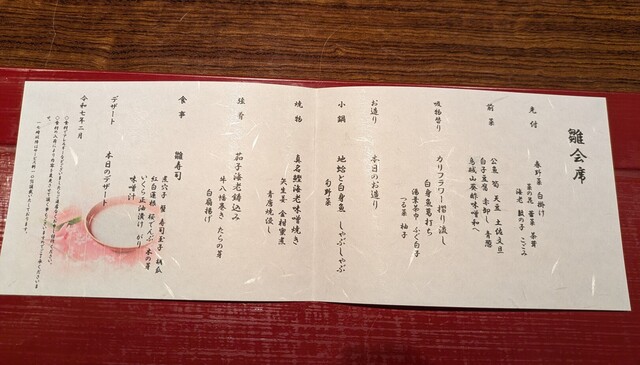 雛会席
先付
春野菜 白掛け
菜の花 蕾菜 茶茸
海老 こごみ
前菜
公魚 筍 天豆 土佐文旦
白子豆腐 赤卸し 青葱
鳥城山葵酢味噌和へ
吸物替り
カリフラワー摺り流し
白身魚葛打ち
湯葉茶巾 ふぐ白子
つる菜 柚子
お造り
本日のお造り
小鍋
地蛤と白身魚 しゃぶしゃぶ
旬野菜
焼物
真名鰹海老味噌焼き
矢生姜 金柑蜜煮
青唐焼浸し
強肴
茄子海老鋳込み
牛八幡巻き たらの芽
白扇揚げ
食事
雛寿司
煮穴子 蟹 寿司玉子 胡瓜
紅白蓮根 桜でんぶ 木の芽
いくら正油漬け がり
味噌汁
デザート
本日のデザート
令和七年二月